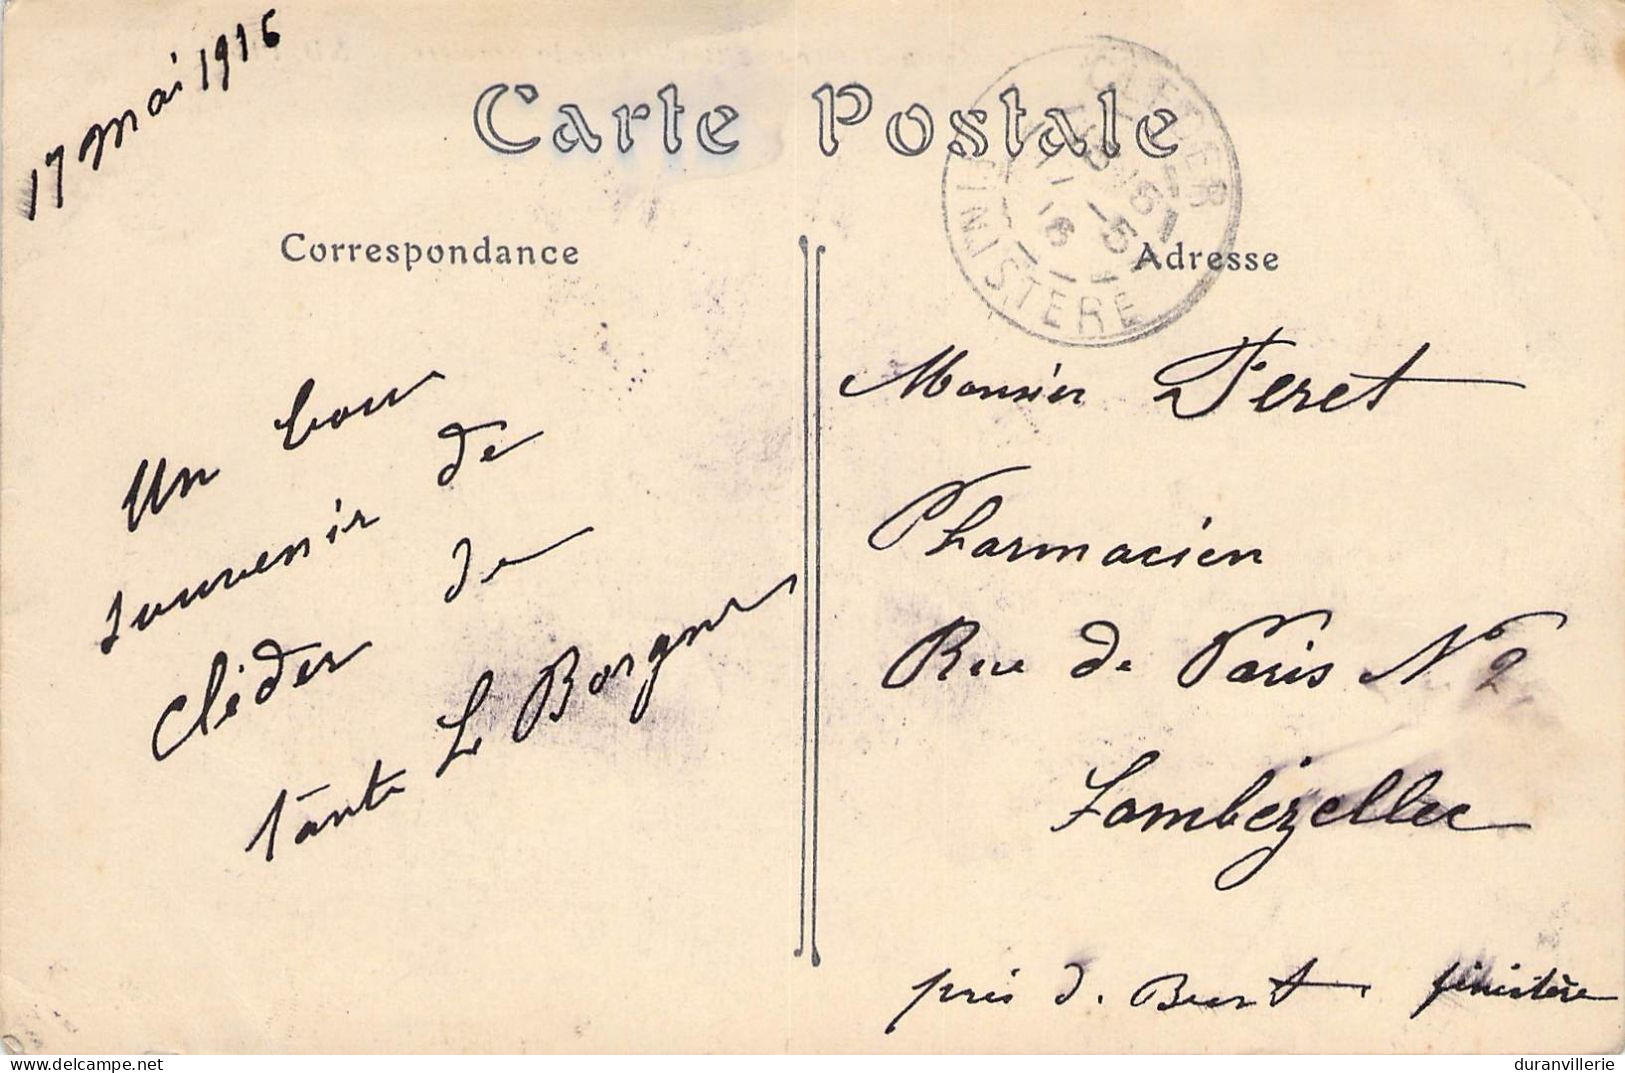 17 mai 1916
Carte Postale
CLEDER
FINISTERE
Correspondance
Adresse
Un bon
souvenir de
Cléder de
tante Le Borgne
Monsieur Feret
Pharmacien
Rue de Paris N 2
Lambézellec
près d. Brest. finistère
duranvillerie